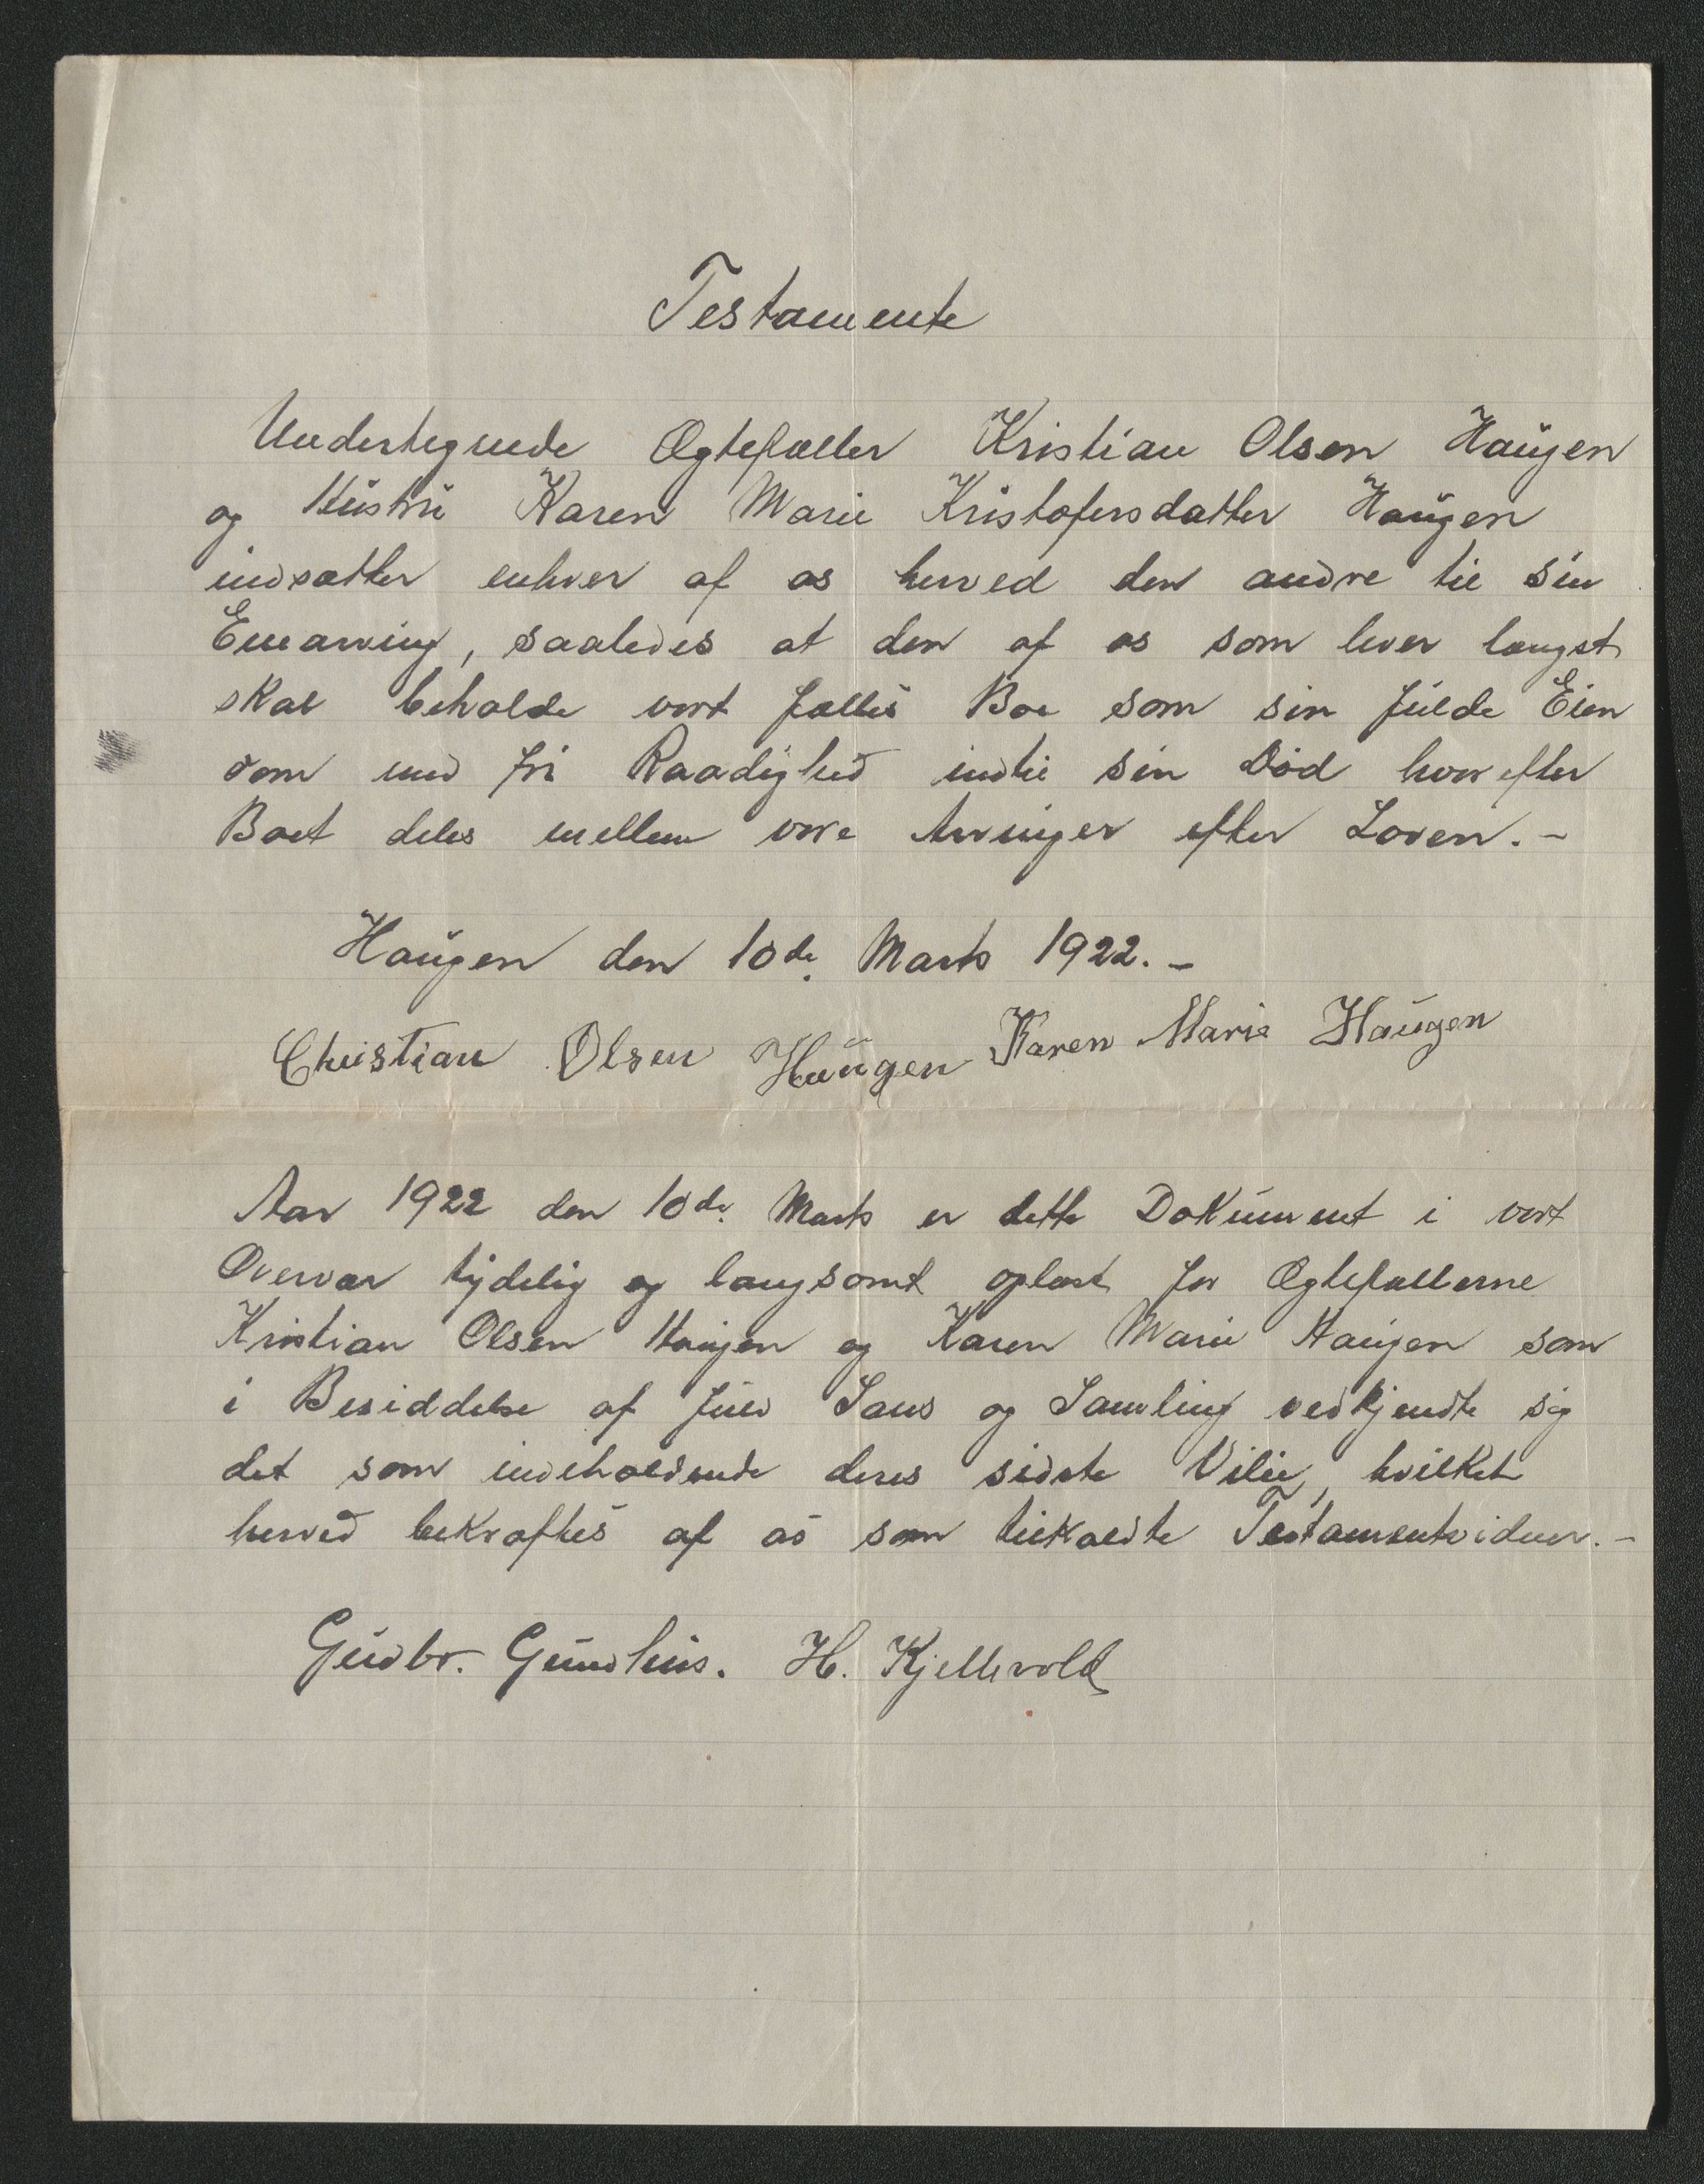 Testamente
Undertegnede Ægtefæller Kristian Olsen Haugen
og Hustru Karen Marie Kristofersdatter Haugen
indsætter enhver af os herved den andre til sin
Enearving, saaledes at den af os som lever længst
skal beholde vort fælles Boe som sin fulde Eien
dom med fri Raadighed indtil sin Død hvorefter
Boet deles mellem vore Arvinger efter Loven.-
Haugen den 10de Marts 1922.-
Christian Olsen Haugen Karen Marie Haugen
Aar 1922 den 10de Marts er dette Dokument i vort
Overvær tydelig og langsomt oplæst for Ægtefællerne
Kristian Olsen Haugen og Karen Marie Haugen som
i Besiddelse af fuld Sans og Samling vedkjendte sig
det som indeholdende deres sidste Vilie, hvilket
herved bekræftes af os som tilkaldte Testamentvidner.-
Gudbr. Gundhus. H. Kjellivold